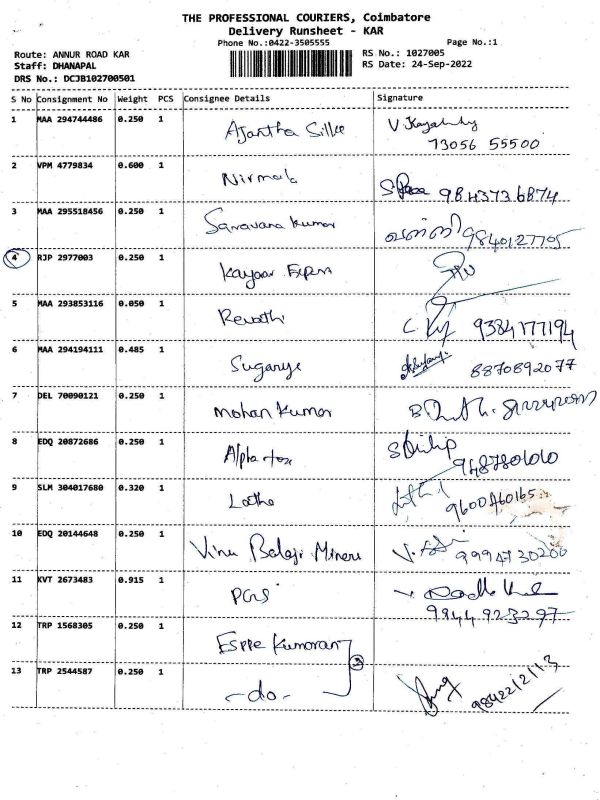 THE PROFESSIONAL COURIERS, Coimbatore
Delivery Runsheet - KAR
Phone No.:0422-3505555
Page No.:1
Route: ANNUR ROAD KAR
RS No.: 1027005
Staff: DHANAPAL
RS Date: 24-Sep-2022
DRS No.: DCJB102700501
S No Consignment No Weight PCS Consignee Details Signature
1 MAA 294744486 0.250 1 Ajantha Silks
73056 55500
2 VPM 4779834 0.600 1 Nirmala
9843736874
3 MAA 295518456 0.250 1 Saravana Kumar
9840127705
4 RJP 2977003 0.250 1
5 MAA 293853116 0.050 1 Revathi 9384177194
6 MAA 294194111 0.485 1 Suganya
8870892077
7 DEL 70090121 0.250 1 Mohan Kumar
8 EDQ 20872686 0.250 1 Alpha tex S Dilip
9487801010
9 SLM 304017680 0.320 1 Latha
9600460165
10 EDQ 20144648 0.250 1 Vinu Balaji 9994730200
11 KVT 2673483 0.915 1
9844923297
12 TRP 1568305 0.250 1 Esppe Kumaran
2
13 TRP 2544587 0.250 1 -do-
9842212113